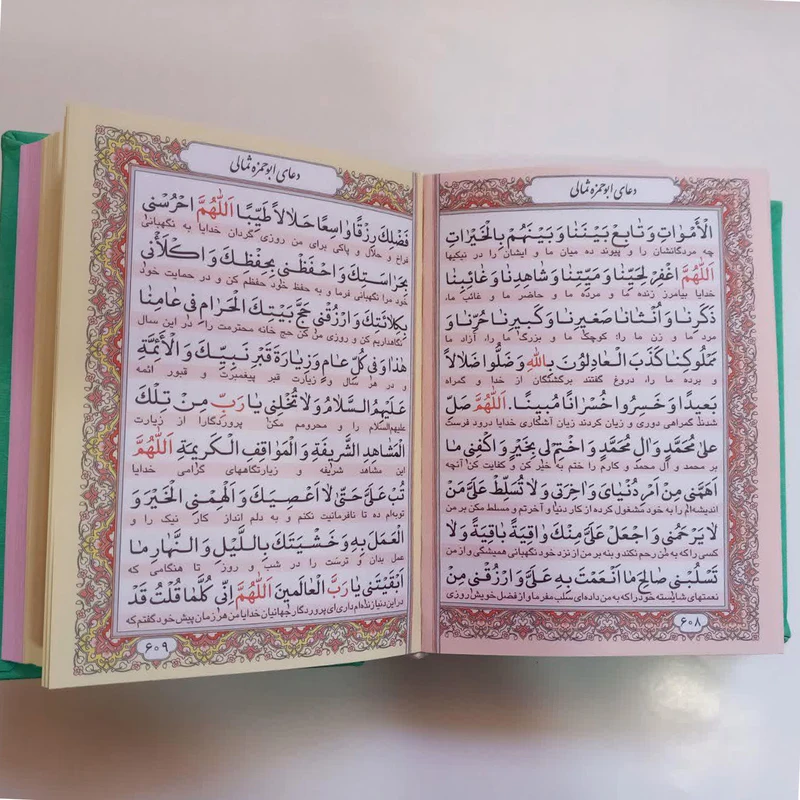 دعای ابوحمزه ثمالی
الْأَمْوَاتِ وَتَابِعْ بَيْنَنَا وَبَيْنَهُمْ بِالْخَيْرَاتِ
چه مردگانشان را و پیوند ده میان ما و ایشان را در نیکیها
اَللّٰهُمَّ اغْفِرْ لِحَيِّنَا وَمَيِّتِنَا وَشَاهِدِنَا وَغَائِبِنَا
خدایا بیامرز زنده ما و مرده ما و حاضر ما و غائب ما،
ذَكَرِنَا وَاُنْثَانَا صَغِيرِنَا وَكَبِيرِنَا حُرِّنَا وَ
مرد ما و زن ما را، کوچک ما و بزرگ ما را، آزاد ما
مَمْلُوكِنَا كَذَبَ الْعَادِلُونَ بِاللّٰهِ وَضَلُّوا ضَلَالاً
و برده ما را، دروغ گفتند برگشتگان از خدا و گمراه
بَعِيدًا وَخَسِرُوا خُسْرَانًا مُبِينًا. اَللّٰهُمَّ صَلِّ
شدند گمراهی دوری و زیان کردند زیان آشکاری خدایا درود فرست
عَلىٰ مُحَمَّدٍ وَاٰلِ مُحَمَّدٍ وَاخْتِمْ لِي بِخَيْرٍ وَاكْفِنِي مَا
بر محمد و آل محمد و کارم را ختم به خیر کن و کفایت کن آنچه
اَهَمَّنِي مِنْ اَمْرِ دُنْيَايَ وَاٰخِرَتِي وَلَا تُسَلِّطْ عَلَيَّ مَنْ
اندیشه‌ام را به خود مشغول کرده از کار دنیا و آخرتم و مسلط مکن بر من
لَا يَرْحَمُنِي وَاجْعَلْ عَلَيَّ مِنْكَ وَاقِيَةً بَاقِيَةً وَلَا
کسی را که به من رحم نکند و بنه بر من از نزد خود نگهبانی همیشگی و از من
تَسْلُبْنِي صَالِحَ مَا اَنْعَمْتَ بِهِ عَلَيَّ وَارْزُقْنِي مِنْ
نعمتهای شایسته خود را که به من داده‌ای سلب مفرما و از فضل خویش روزی
۶۰۸
دعای ابوحمزه ثمالی
فَضْلِكَ رِزْقًا وَاسِعًا حَلَالاً طَيِّبًا اَللّٰهُمَّ احْرُسْنِي
فراخ و حلال و پاکی برای من روزی گردان خدایا به نگهبانی
بِحَرَاسَتِكَ وَاحْفَظْنِي بِحِفْظِكَ وَاكْلَأْنِي
خود مرا نگهبانی فرما و به حفظ خود حفظم کن و در حمایت خود
بِكِلَائَتِكَ وَارْزُقْنِي حَجَّ بَيْتِكَ الْحَرَامِ فِي عَامِنَا
نگاهداریم کن و روزی من کن حج خانه محترمت را در این سال
هٰذَا وَفِي كُلِّ عَامٍ وَزِيَارَةَ قَبْرِ نَبِيِّكَ وَالْأَئِمَّةِ
و در هر سال و زیارت قبر پیغمبرت و قبور ائمه
عَلَيْهِمُ السَّلَامُ وَلَا تُخْلِنِي يَا رَبِّ مِنْ تِلْكَ
علیهم‌السلام را و محرومم مکن پروردگارا از زیارت
الْمَشَاهِدِ الشَّرِيفَةِ وَالْمَوَاقِفِ الْكَرِيمَةِ اَللّٰهُمَّ
این مشاهد شریفه و زیارتگاههای گرامی خدایا
تُبْ عَلَيَّ حَتّىٰ لَا اَعْصِيَكَ وَاَلْهِمْنِي الْخَيْرَ وَ
توبه‌ام ده تا نافرمانیت نکنم و به دلم انداز کار نیک را و
الْعَمَلَ بِهِ وَخَشْيَتَكَ بِاللَّيْلِ وَالنَّهَارِ مَا
عمل بدان و ترست را در شب و روز تا هنگامی که
اَبْقَيْتَنِي يَا رَبَّ الْعَالَمِينَ اَللّٰهُمَّ اِنِّي كُلَّمَا قُلْتُ قَدْ
در این دنیا زنده‌ام داری ای پروردگار جهانیان خدایا من هر زمان پیش خود گفتم که
۶۰۹